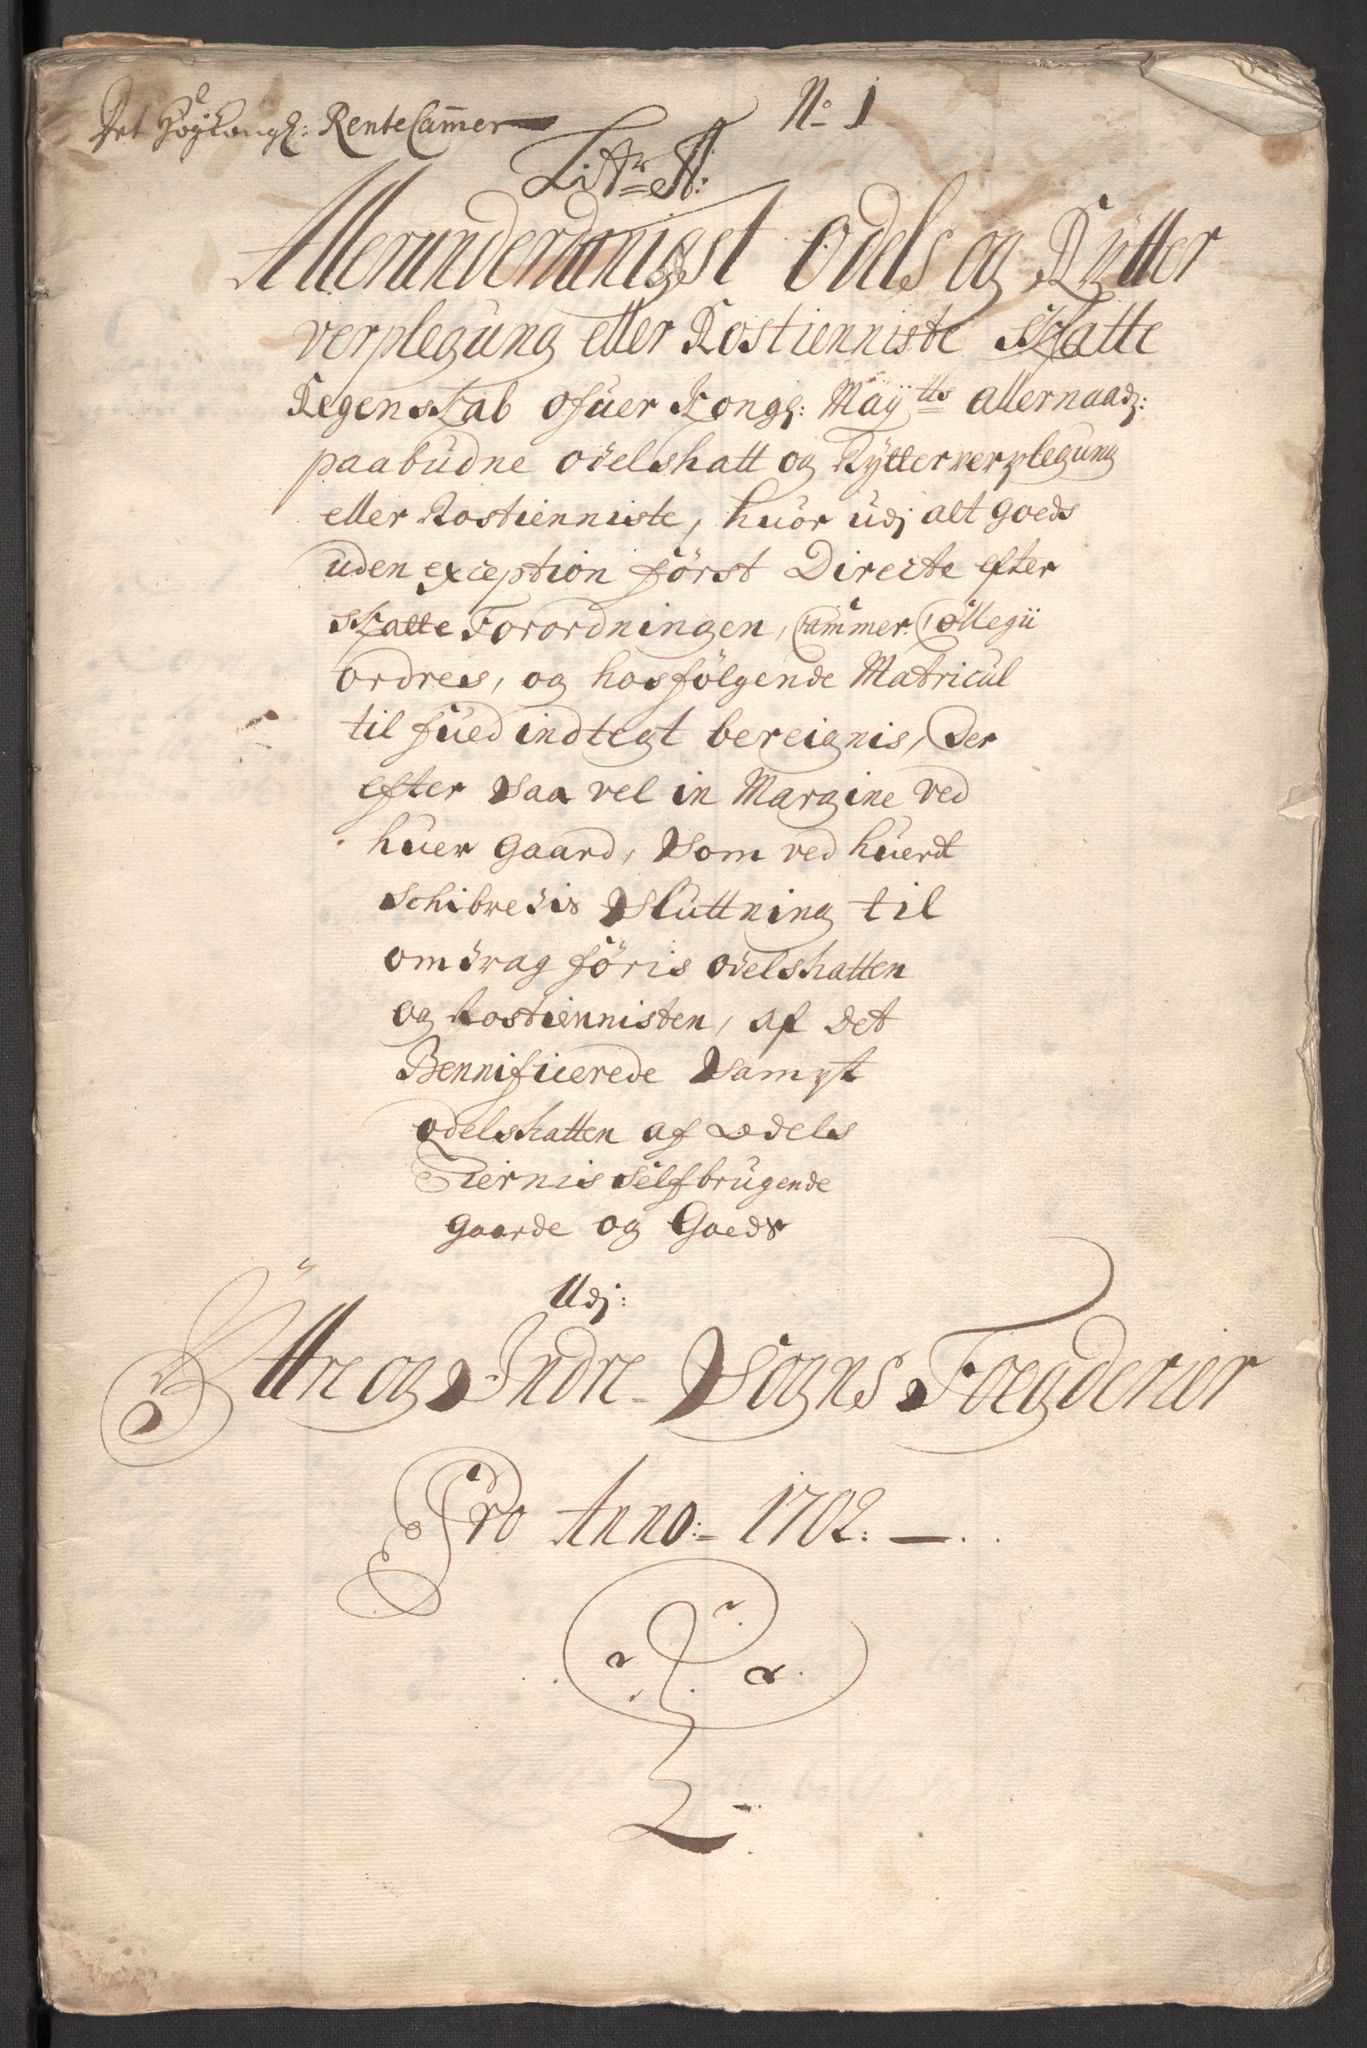 Det Høylongl: RenteCammer
No 1
Litr A:
Allerunderdanigst Odels og Rÿtter
verplegung eller Rostienniste Skatte
Regenskab ofuer Kongl: Maÿtts allernaad:
paabudne odelskatt og Rÿtterverplegung
eller Rostienniste, huor udj alt goeds
uden exception först Directe efter
skatte Forordningen, Cammer Collegii
ordres, og hosfölgende Matricul
til fued indtegt bereignis, Der
efter saa vel in Margine ved
huer gaard, som ved huerdt
schibredis Sluttning til
omdrag föris odelskatten
og Rostiennisten, af det
Bennificerede Sampt
odelskatten af odels
Eiernis selfbrugende
gaarde og Goeds
Udj:
Ÿttre og Indre Sogns Foegderier
Pro Anno 1702.